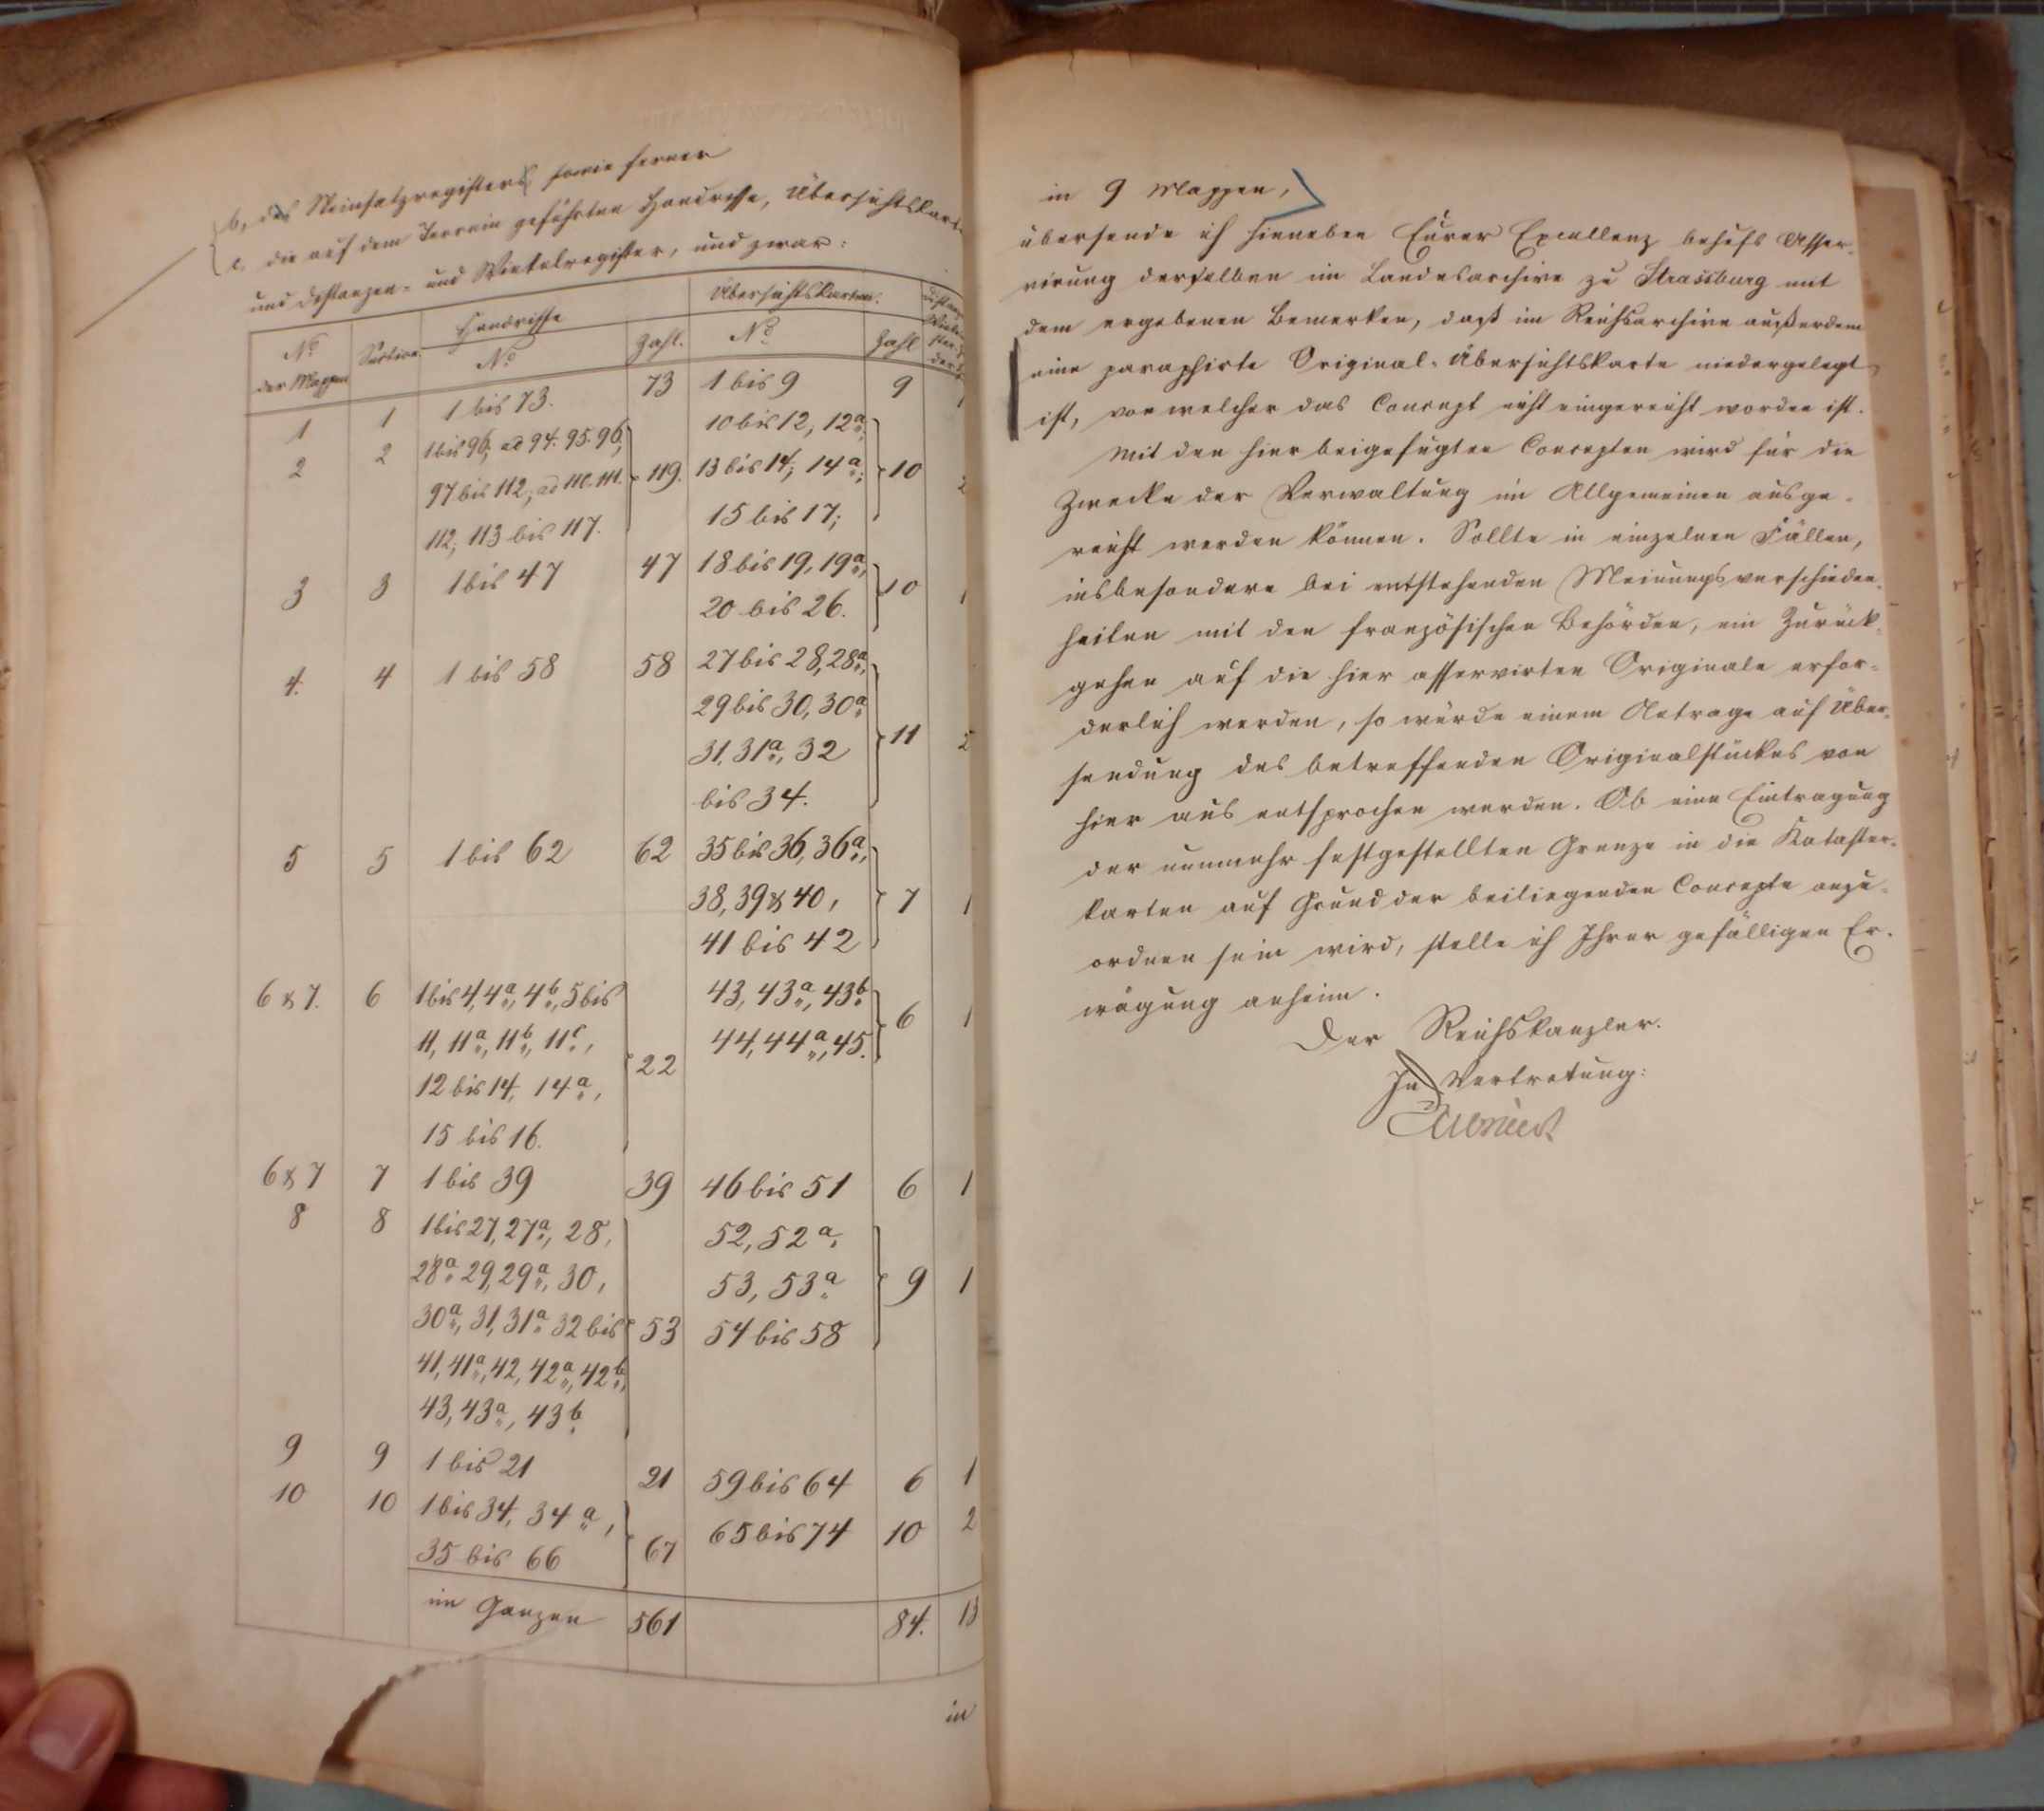 b, des Steinsatzregisters, sowie ferner
c, die auf dem Terrain geführten Handrisse, Übersichtskarten
und Distanzen- und Winkelregister, und zwar:
No der Mappen | Section | Handrisse No | Zahl. | Übersichtskarten. No | Zahl
1 | 1 | 1 bis 73. | 73 | 1 bis 9 | 9 | 1
2 | 2 | 1 bis 96; ad 94. 95. 96; | 119. | 10 bis 12; 12a; | 10 | 2
97 bis 112; ad 110. 111. | 13 bis 14; 14a;
112; 113 bis 117. | 15 bis 17;
3 | 3 | 1 bis 47 | 47 | 18 bis 19, 19a, | 10 | 1
20 bis 26.
4. | 4 | 1 bis 58 | 58 | 27 bis 28, 28a, | 11 | 2
29 bis 30, 30a
31, 31a, 32
bis 34.
5 | 5 | 1 bis 62 | 62 | 35 bis 36, 36a, | 7 | 1
38, 39 & 40,
41 bis 42
6 & 7. | 6 | 1 bis 4, 4a, 4b, 5 bis | 22 | 43, 43a, 43b | 6 | 1
11, 11a, 11b, 11c, | 44, 44a, 45.
12 bis 14, 14a,
15 bis 16.
6 & 7 | 7 | 1 bis 39 | 39 | 46 bis 51 | 6 | 1
8 | 8 | 1 bis 27, 27a, 28, | 53 | 52, 52a, | 9 | 1
28a, 29, 29a, 30, | 53, 53a
30a, 31, 31a 32 bis | 54 bis 58
41, 41a, 42, 42a, 42b,
43, 43a, 43b
9 | 9 | 1 bis 21 | 21 | 59 bis 64 | 6 | 1
10 | 10 | 1 bis 34, 34a, | 67 | 65 bis 74 | 10 | 2
35 bis 66
im Ganzen | 561 | 84. | 13
in
in 9 Mappen,
übersende ich hieneben Eurer Excellenz behufs Asser-
virung derselben im Landesarchive zu Strassburg mit
dem ergebenen Bemerken, daß im Reichsarchive außerdem
eine paraphirte Original-Übersichtskarte niedergelegt
ist, von welcher das Concept nicht eingereicht worden ist.
Mit den hier beigefügten Concepten wird für die
Zwecke der Verwaltung im Allgemeinen ausge-
reicht werden können. Sollte in einzelnen Fällen,
insbesondere bei entstehenden Meinungsverschieden-
heiten mit den französischen Behörden, ein Zurück-
gehen auf die hier asservirten Originale erfor-
derlich werden, so würde einem Antrage auf Über-
sendung des betreffenden Originalstückes von
hier aus entsprochen werden. Ob eine Eintragung
der nunmehr festgestellten Grenze in die Kataster-
karten auf Grund der beiliegenden Concepte anzu-
ordnen sein wird, stelle ich Ihrer gefälligen Er-
wägung anheim.
Der Reichskanzler.
In Vertretung: